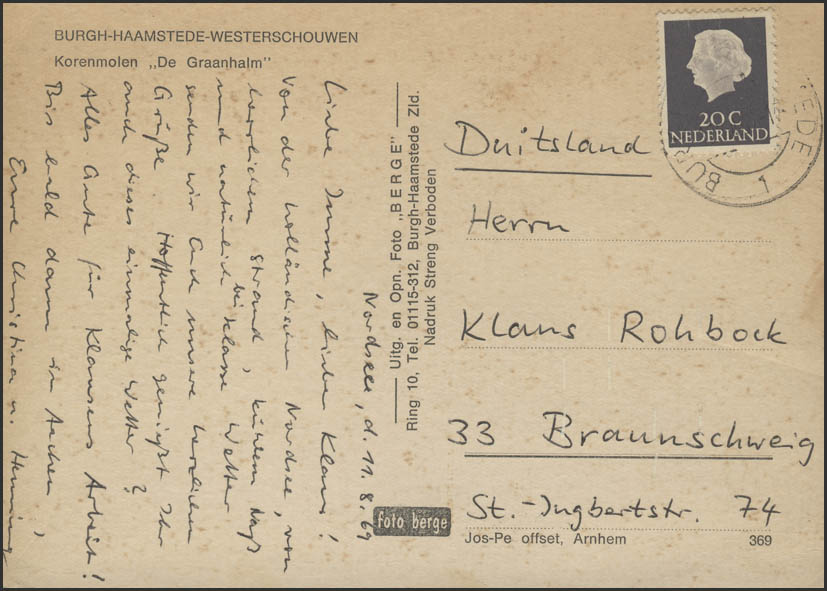 BURGH-HAAMSTEDE-WESTERSCHOUWEN
Korenmolen „De Graanhalm”
Nordsee, d. 11.8.69
Liebe Imme, lieber Klaus!
Von der holländischen Nordsee, von
herrlichem Strand, kühlem Naß
und natürlich bei klasse Wetter
senden wir Euch unsere herzlichen
Grüße. Hoffentlich genießt Ihr
auch dieses einmalige Wetter?
Alles Gute für Klausens Arbeit!
Bis bald dann in Aachen,
Eure Christina u. Henning
Uitg. en Opn. Foto „BERGE”
Ring 10, Tel. 01115-312, Burgh-Haamstede Zld.
Nadruk Streng Verboden
foto berge
20 C
NEDERLAND
1
Duitsland
Herrn
Klaus Rohbock
33 Braunschweig
St.-Ingbertstr. 74
Jos-Pe offset, Arnhem 369